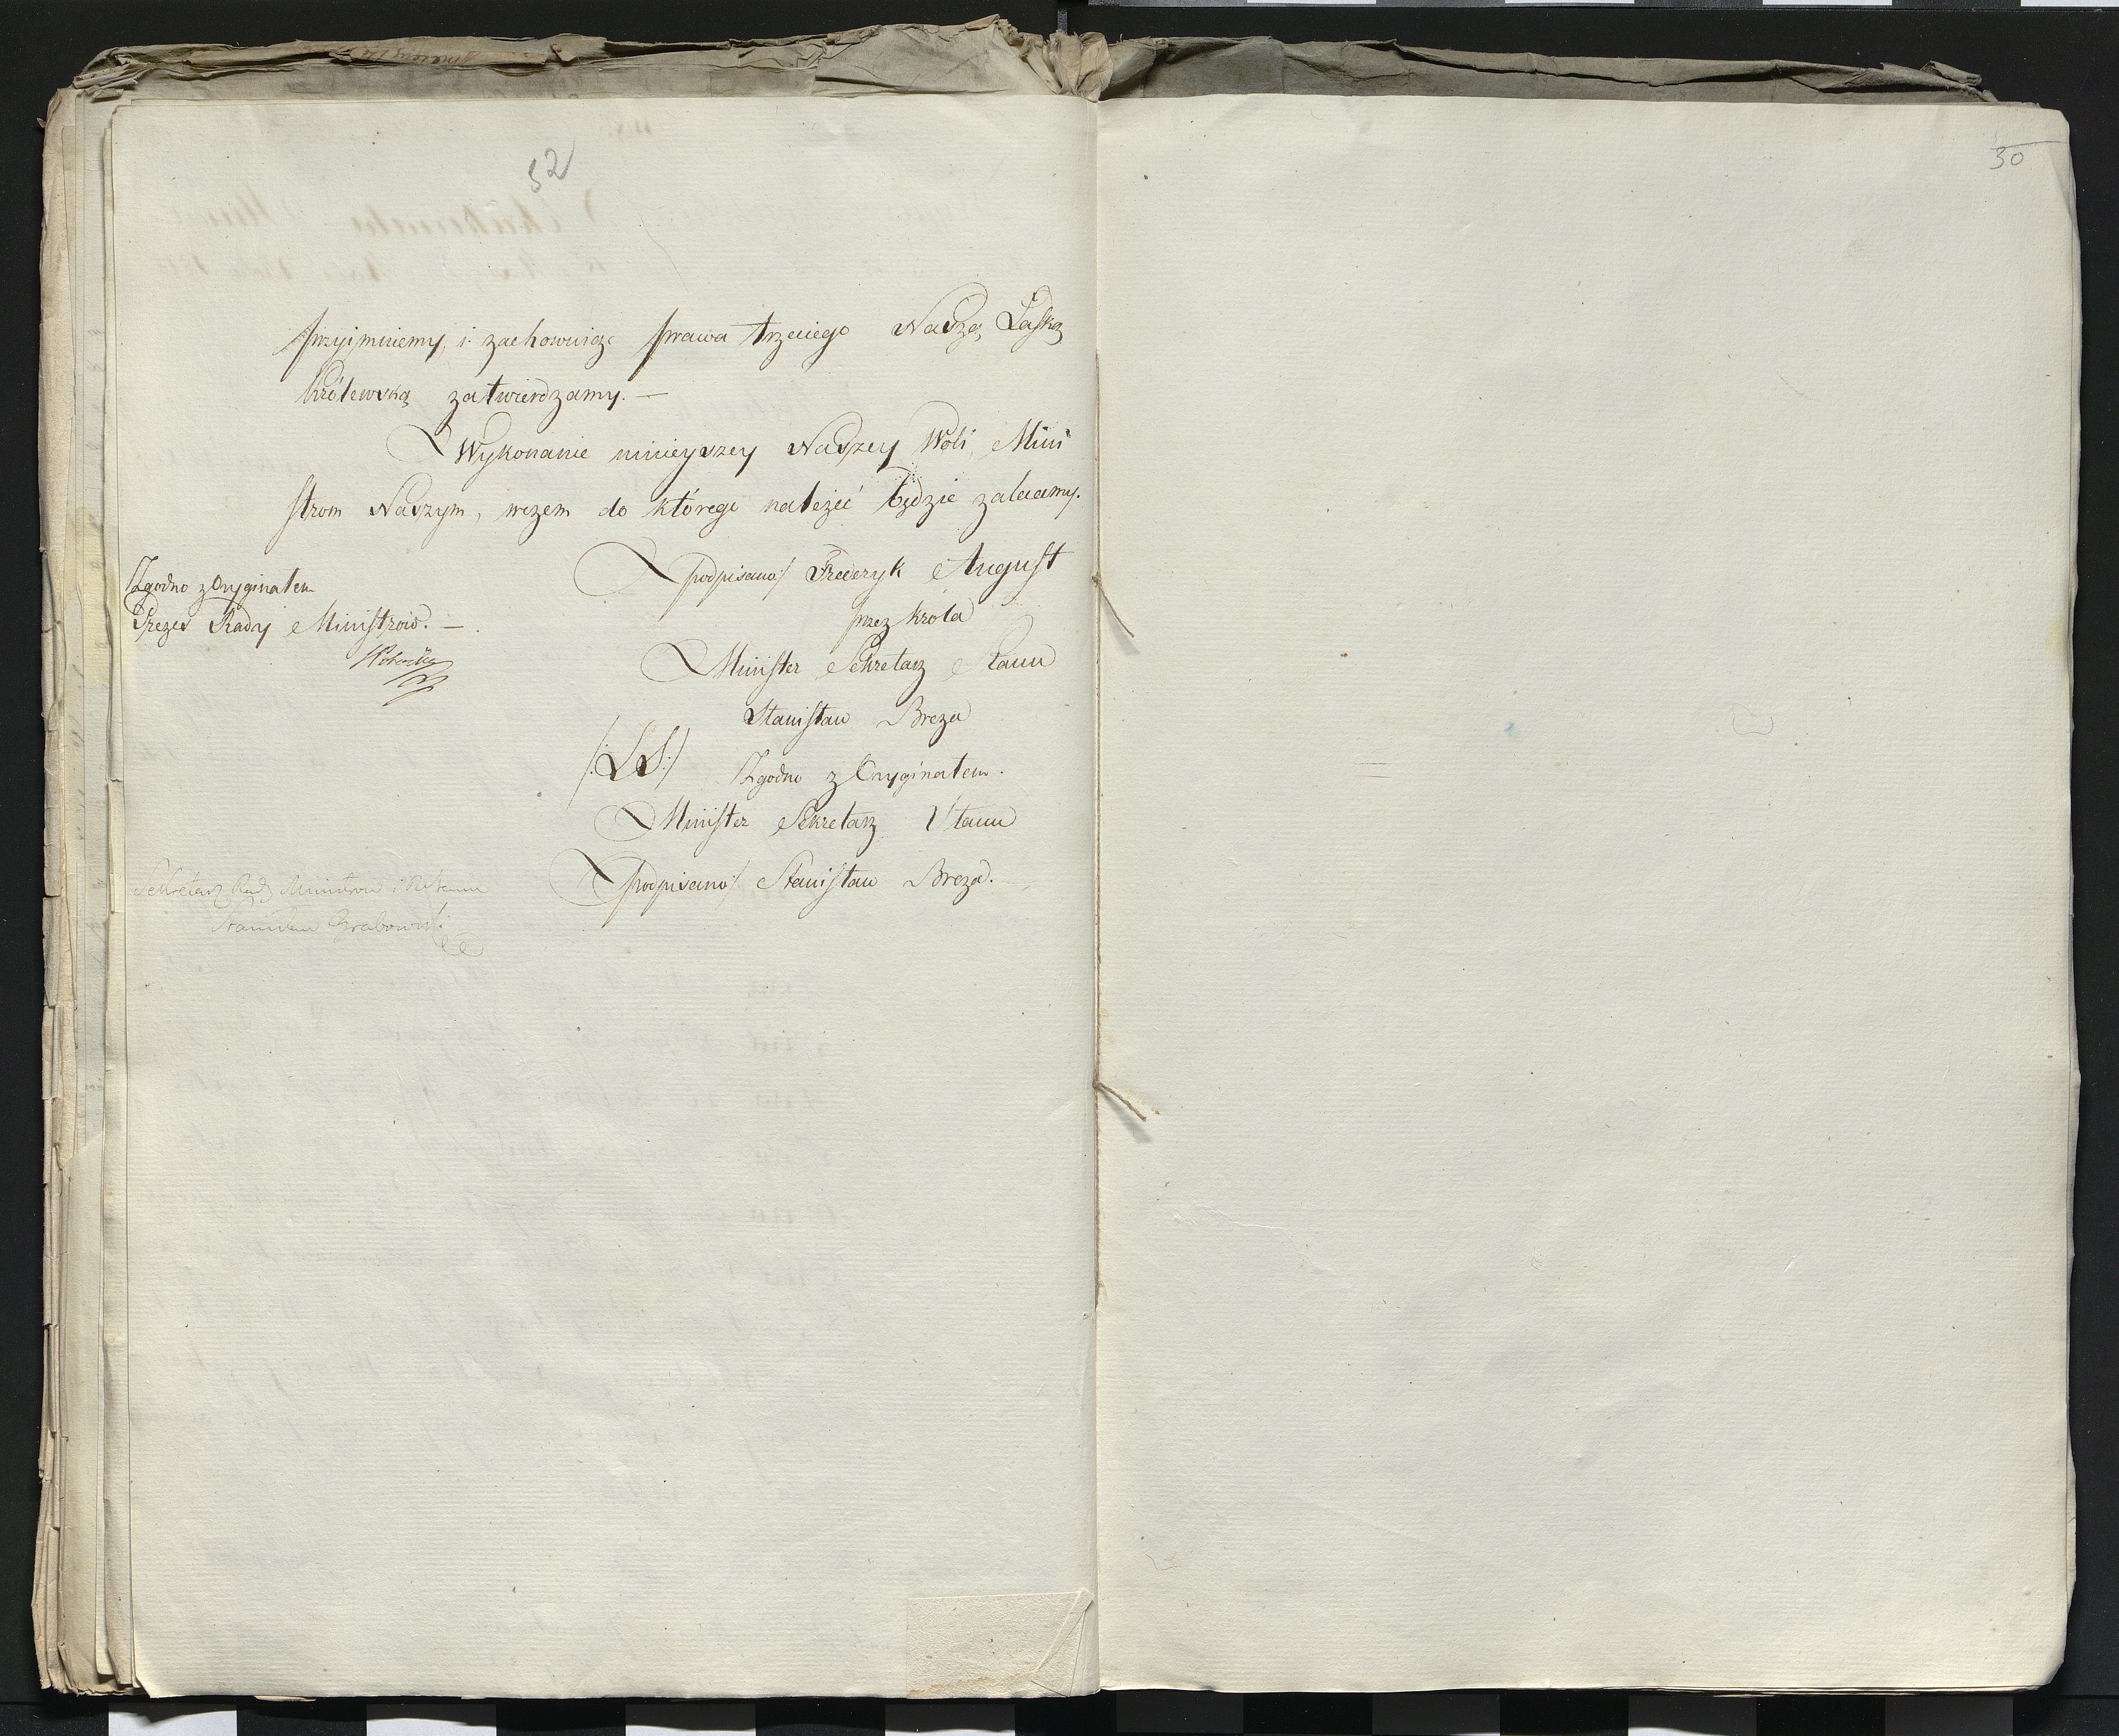 52
30
przyimuiemy, i zachowuiąc prawa trzeciego Naszą Łaską
Królewską zatwierdzamy. —
Wykonanie ninieyszey Naszey Woli, Mini
strom Naszym, wczem do którego należeć będzie zalecamy.
podpisano/ Frederyk August
przez Króla
Minister Sekretarz Stanu
Stanisław Breza
/:LS:/ Zgodno z Oryginałem.
Minister Sekretarz Stanu
podpisano/ Stanisław Breza. —
Zgodno z Oryginałem
Prezes Rady Ministrów. —
Sekretarz Rady Ministrów i Stanu
Stanisław Grabowski